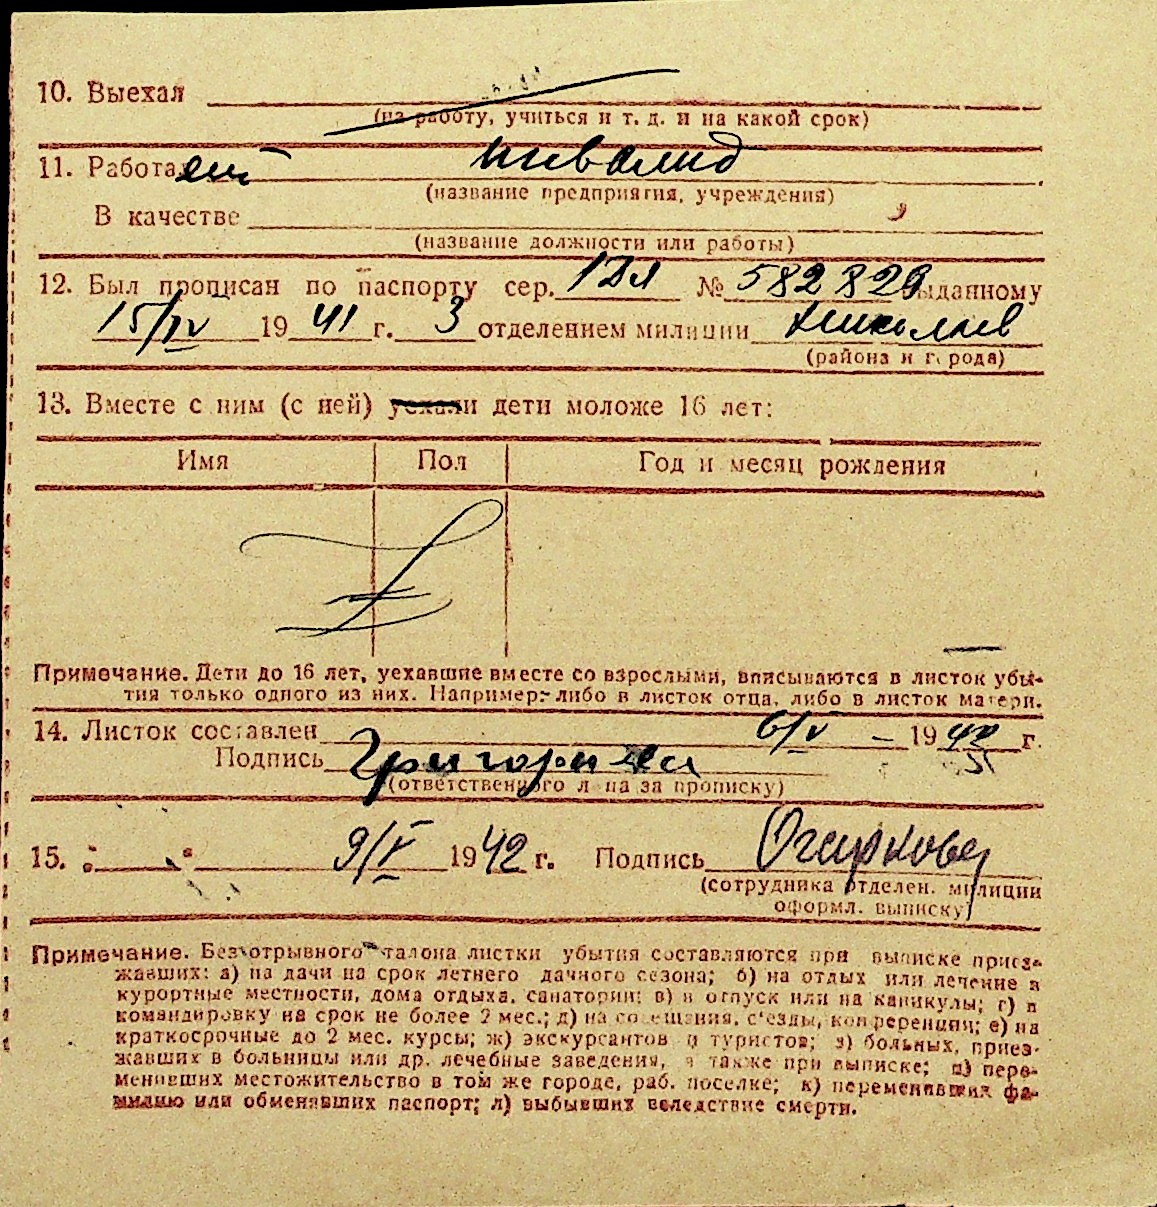 10. Выехал
(на работу, учиться и т. д. и на какой срок)
11. Работа инвалид
(название предприятия, учреждения)
В качестве
(название должности или работы)
12. Был прописан по паспорту сер. № 582829 выданному
15/IV 1941 г. 3 отделением милиции
(района и города)
13. Вместе с ним (с ней) уехали дети моложе 16 лет:
Имя Пол Год и месяц рождения
Примечание. Дети до 16 лет, уехавшие вместе со взрослыми, вписываются в листок убы-
тия только одного из них. Например: либо в листок отца, либо в листок матери.
14. Листок составлен 6/V – 1942 г.
Подпись
(ответственного л па за прописку)
15. „ “ 9/V 1942 г. Подпись
(сотрудника отделен. милиции
оформл. выписку)
Примечание. Без отрывного талона листки убытия составляются при выписке приез-
жавших: а) на дачи на срок летнего дачного сезона; б) на отдых или лечение в
курортные местности, дома отдыха, санатории; в) в отпуск или на каникулы; г) в
командировку на срок не более 2 мес.; д) на совещания, с'езды, конференции; е) на
краткосрочные до 2 мес. курсы; ж) экскурсантов и туристов; з) больных, приез-
жавших в больницы или др. лечебные заведения, а также при выписке; и) пере-
менивших местожительство в том же городе, раб. поселке; к) переменивших фа-
милию или обменявших паспорт; л) выбывших вследствие смерти.